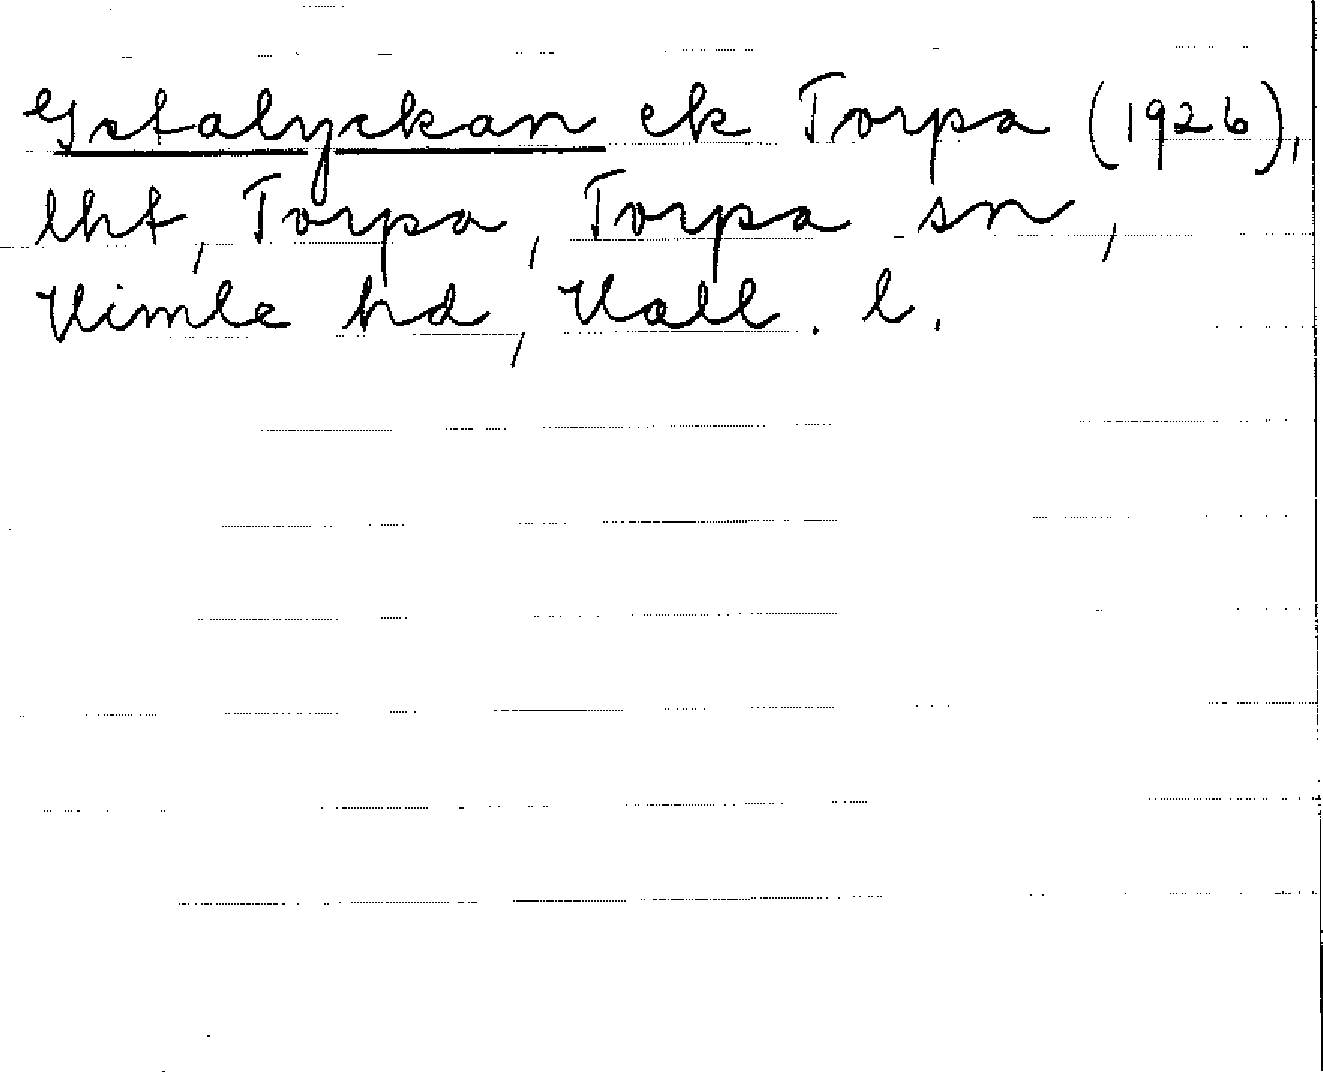 Ystalyckan ek Torpa (1926),
lht, Torpa, Torpa sn,
Himle hd, Hall. l.